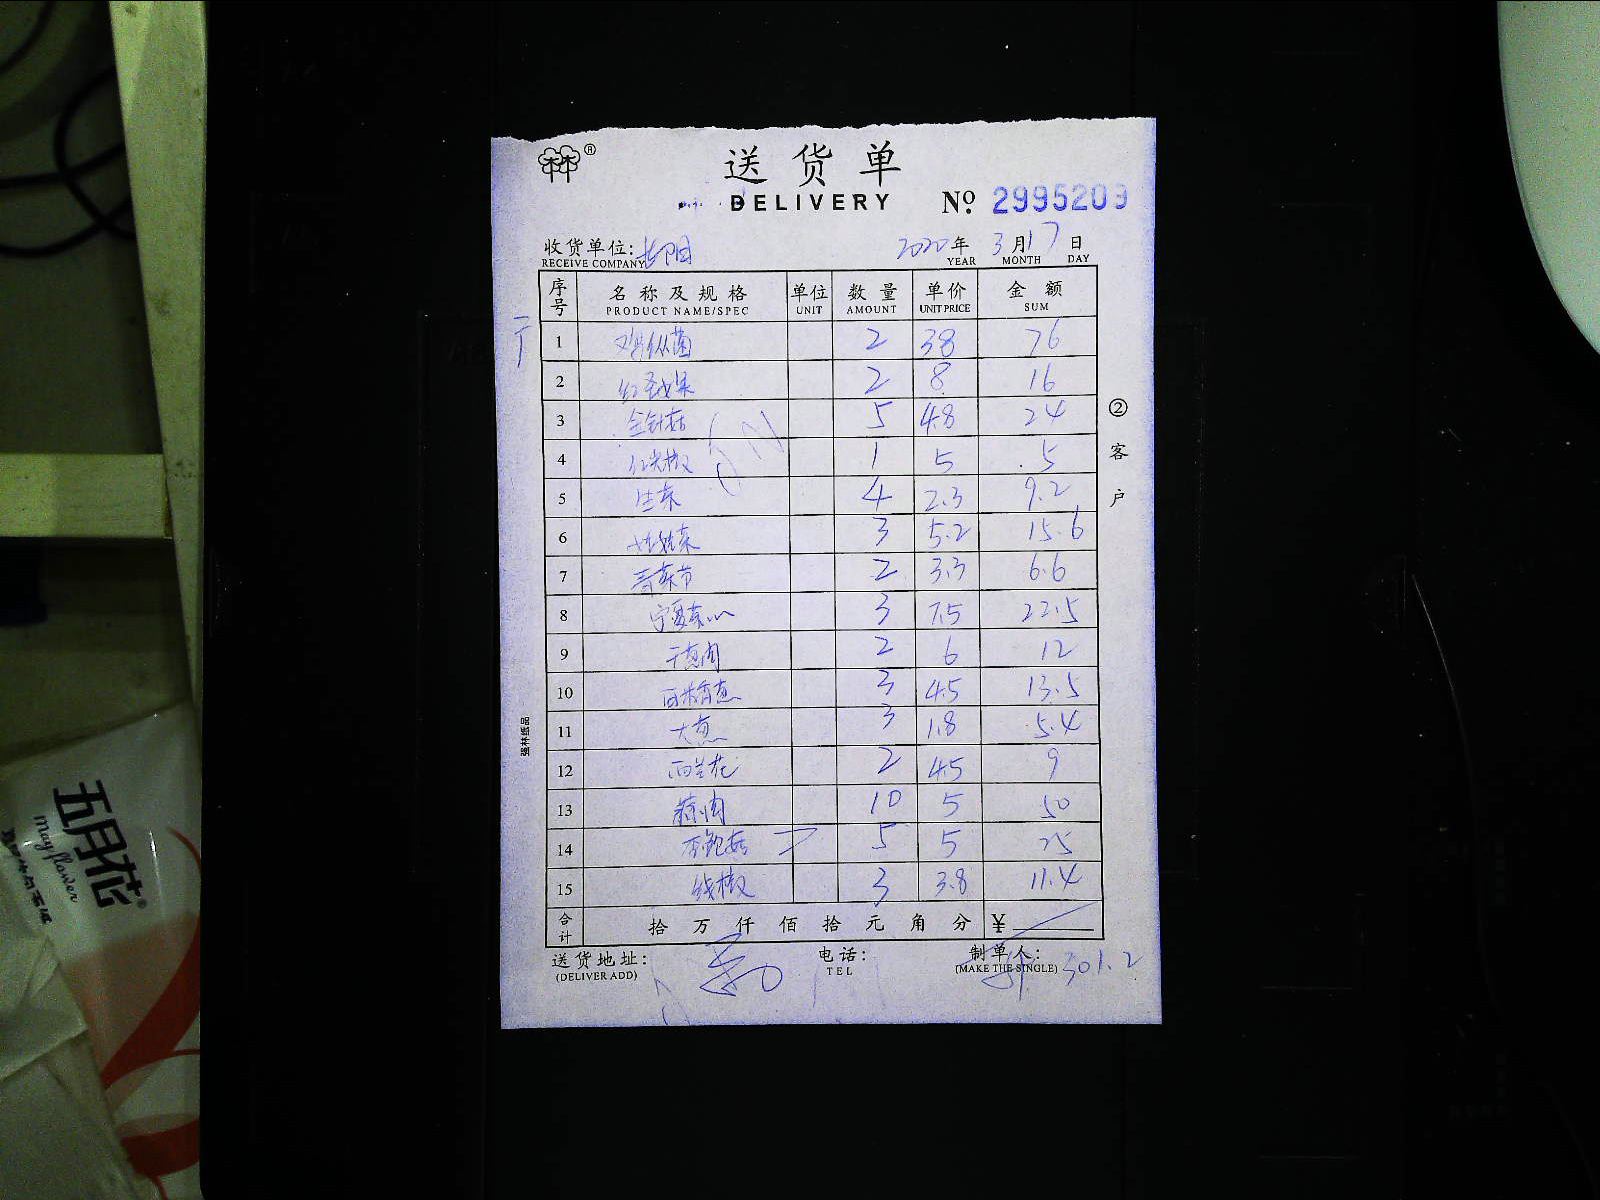 送货单
DELIVERY
№ 2995209
收货单位: 长阳 2020年 3月17日
RECEIVE COMPANY YEAR MONTH DAY
序号 名称及规格 单位 数量 单价 金额
PRODUCT NAME/SPEC UNIT AMOUNT UNIT PRICE SUM
1 鸡纵菌 2 38 76
2 红圣女果 2 8 16
3 金针菇 5 4.8 24
4 红尖椒 1 5 5
5 生菜 4 2.3 9.2
6 娃娃菜 3 5.2 15.6
7 青菜节 2 3.3 6.6
8 宁夏菜心 3 7.5 22.5
9 干葱肉 2 6 12
10 3 4.5 13.5
11 大葱 3 1.8 5.4
12 西兰花 2 4.5 9
13 蒜肉 10 5 50
14 杏鲍菇 5 5 25
15 线椒 3 3.8 11.4
合计 拾万仟佰拾元角分 ¥
送货地址: 电话: 制单人:
(DELIVER ADD) TEL (MAKE THE SINGLE) 301.2
②客户
强林纸品
五月花
Mayflower